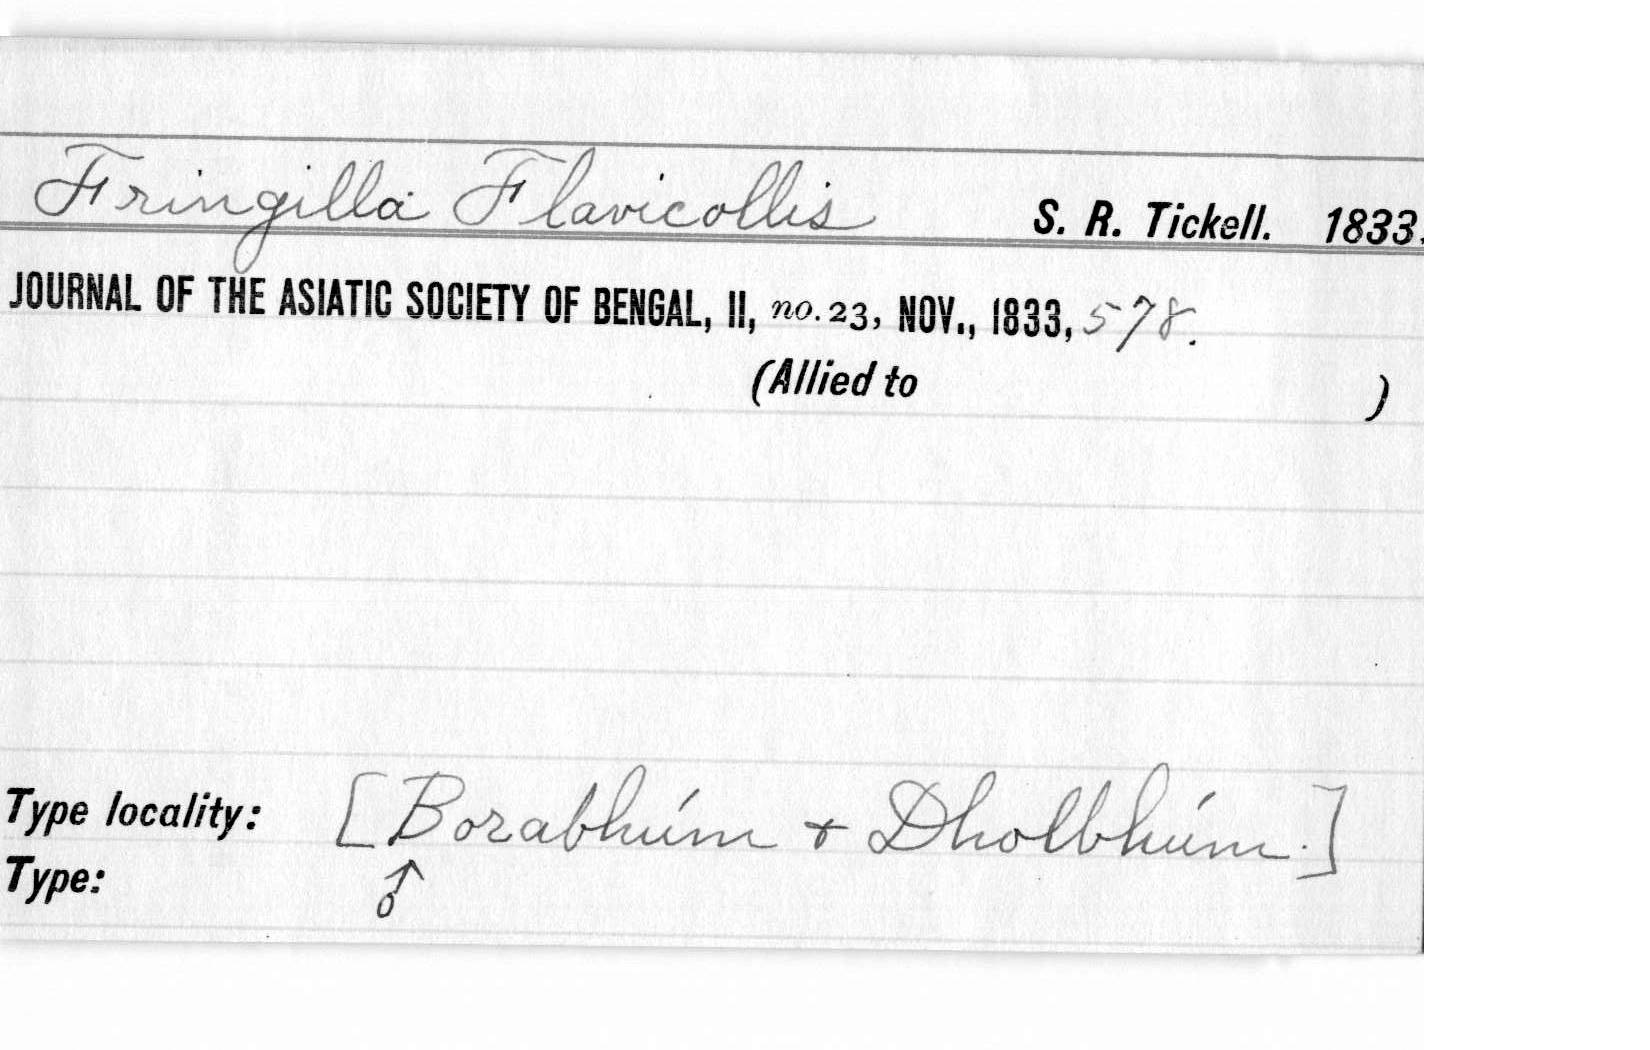 Fringilla Flavicollis S. R. Tickell. 1833.
JOURNAL OF THE ASIATIC SOCIETY OF BENGAL, II, no. 23, NOV., 1833, 578.
(Allied to )
Type locality: [Borabhúm & Dholbhúm.]
Type: ♂